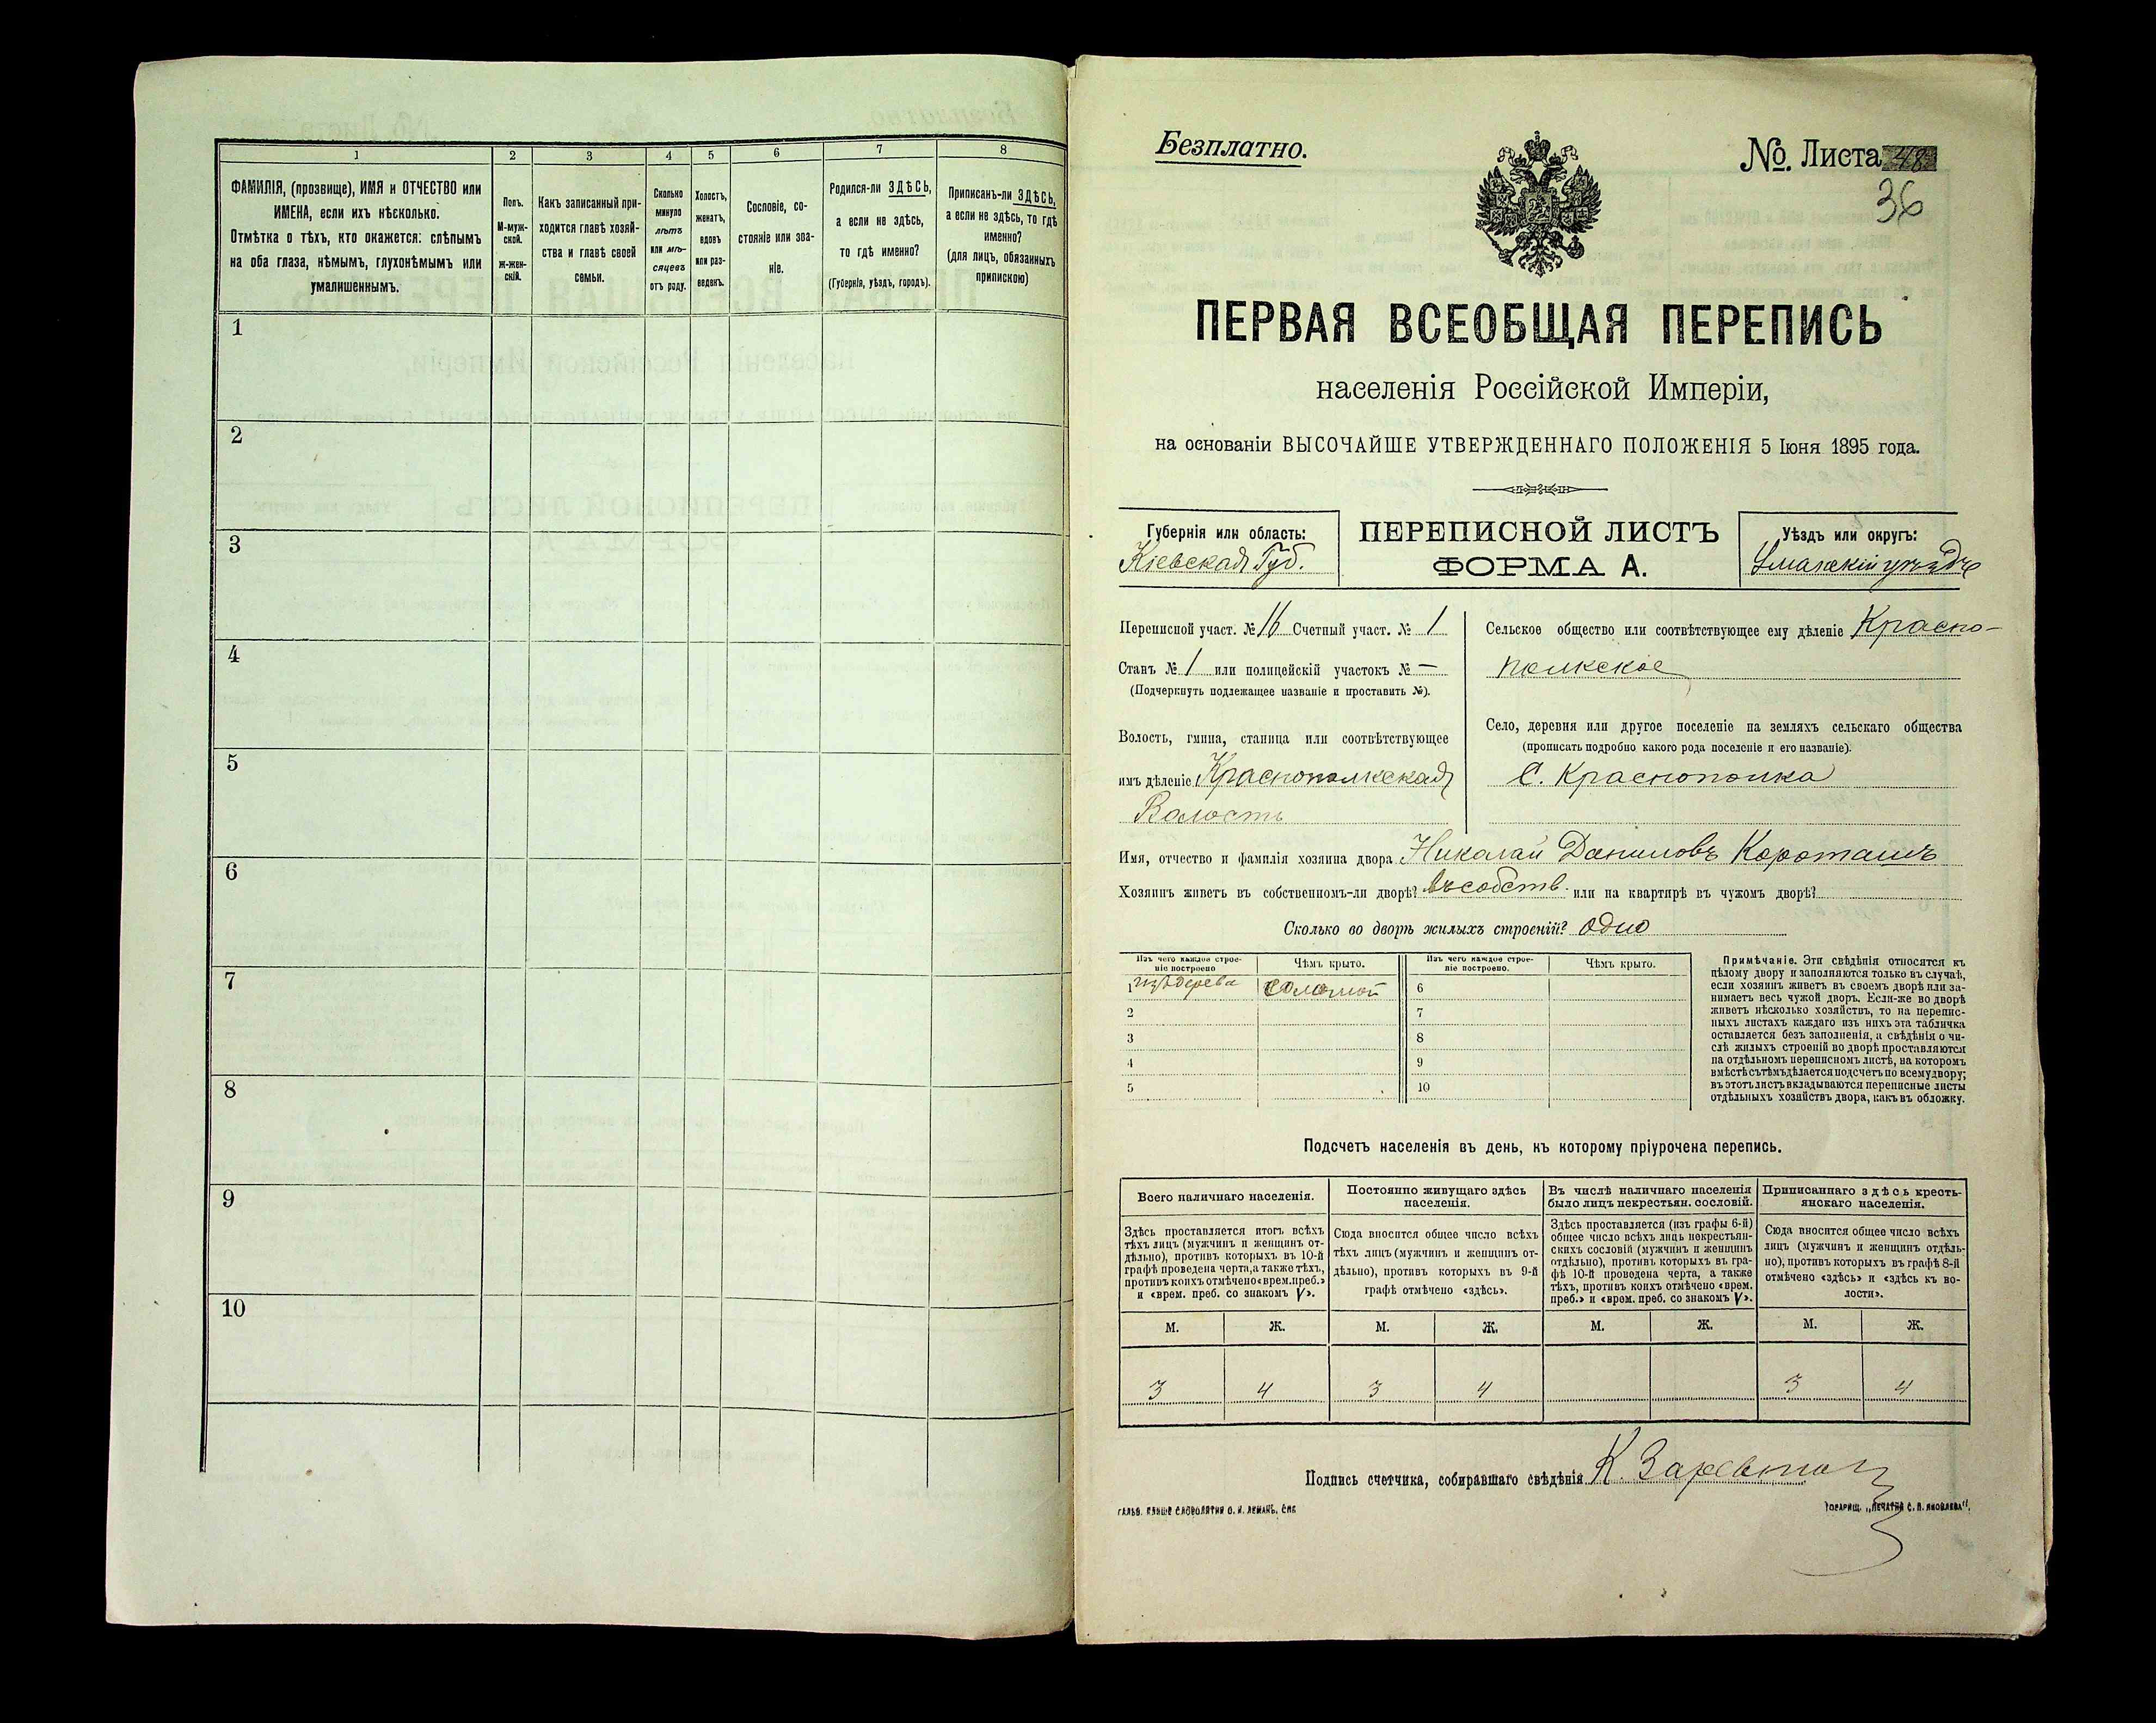 1 2 3 4 5 6 7 8
ФАМИЛІЯ, (прозвище), ИМЯ и ОТЧЕСТВО или
ИМЕНА, если ихъ нѣсколько.
Отмѣтка о тѣхъ, кто окажется: слѣпымъ
на оба глаза, нѣмымъ, глухонѣмымъ или
умалишеннымъ.
Полъ.
М-муж-
ской.
ж-жен-
скій.
Какъ записанный при-
ходится главѣ хозяй-
ства и главѣ своей
семьи.
Сколько
минуло
лѣтъ
или мѣ-
сяцевъ
отъ роду.
Холостъ,
женатъ,
вдовъ
или раз-
веденъ.
Сословіе, со-
стояніе или зва-
ніе.
Родился-ли ЗДѢСЬ,
а если не здѣсь,
то гдѣ именно?
(Губернія, уѣздъ, городъ).
Приписанъ-ли ЗДѢСЬ,
а если не здѣсь, то гдѣ
именно?
(для лицъ, обязанныхъ
припискою)
1
2
3
4
5
6
7
8
9
10
Безплатно.
№ Листа 48
36
ПЕРВАЯ ВСЕОБЩАЯ ПЕРЕПИСЬ
населенія Россійской Имперіи,
на основаніи ВЫСОЧАЙШЕ УТВЕРЖДЕННАГО ПОЛОЖЕНІЯ 5 Іюня 1895 года.
Губернія или область:
Кіевская Губ.
ПЕРЕПИСНОЙ ЛИСТЪ
ФОРМА А.
Уѣздъ или округъ:
Уманскій уѣздъ
Переписной участ. № 16 Счетный участ. № 1
Станъ № 1 или полицейскій участокъ № —
(Подчеркнуть подлежащее названіе и проставить №).
Волость, гмина, станица или соотвѣтствующее
имъ дѣленіе Краснополкская
Волость
Сельское общество или соотвѣтствующее ему дѣленіе Красно-
полкское
Село, деревня или другое поселеніе на земляхъ сельскаго общества
(прописать подробно какого рода поселеніе и его названіе).
С. Краснополка
Имя, отчество и фамилія хозяина двора Николай Даниловъ Короташъ
Хозяинъ живетъ въ собственномъ-ли дворѣ? въ собств. или на квартирѣ въ чужомъ дворѣ?
Сколько во дворѣ жилыхъ строеній? одно
Изъ чего каждое строе-
ніе построено
Чѣмъ крыто.
Изъ чего каждое строе-
ніе построено.
Чѣмъ крыто.
1 изъ дерева соломой 6
2 7
3 8
4 9
5 10
Примѣчаніе. Эти свѣдѣнія относятся къ
цѣлому двору и заполняются только въ случаѣ,
если хозяинъ живетъ въ своемъ дворѣ или за-
нимаетъ весь чужой дворъ. Если-же во дворѣ
живетъ нѣсколько хозяйствъ, то на перепис-
ныхъ листахъ каждаго изъ нихъ эта табличка
оставляется безъ заполненія, а свѣдѣнія о чи-
слѣ жилыхъ строеній во дворѣ проставляются
на отдѣльномъ переписномъ листѣ, на которомъ
вмѣстѣ съ тѣмъ дѣлается подсчетъ по всему двору;
въ этотъ листъ вкладываются переписные листы
отдѣльныхъ хозяйствъ двора, какъ въ обложку.
Подсчетъ населенія въ день, къ которому пріурочена перепись.
Всего наличнаго населенія.
Здѣсь проставляется итогъ всѣхъ
тѣхъ лицъ (мужчинъ и женщинъ от-
дѣльно), противъ которыхъ въ 10-й
графѣ проведена черта, а также тѣхъ,
противъ коихъ отмѣчено «врем. преб.»
и «врем. преб. со знакомъ V».
Постоянно живущаго здѣсь
населенія.
Сюда вносится общее число всѣхъ
тѣхъ лицъ (мужчинъ и женщинъ от-
дѣльно), противъ которыхъ въ 9-й
графѣ отмѣчено «здѣсь».
Въ числѣ наличнаго населенія
было лицъ некрестьян. сословій.
Здѣсь проставляется (изъ графы 6-й)
общее число всѣхъ лицъ некрестьян-
скихъ сословій (мужчинъ и женщинъ
отдѣльно), противъ которыхъ въ гра-
фѣ 10-й проведена черта, а также
тѣхъ, противъ коихъ отмѣчено «врем.
преб.» и «врем. преб. со знакомъ V».
Приписаннаго здѣсь кресть-
янскаго населенія.
Сюда вносится общее число всѣхъ
лицъ (мужчинъ и женщинъ отдѣль-
но), противъ которыхъ въ графѣ 8-й
отмѣчено «здѣсь» и «здѣсь къ во-
лости».
М. Ж. М. Ж. М. Ж. М. Ж.
3 4 3 4 3 4
Подпись счетчика, собиравшаго свѣдѣнія К.
ТОВАРИЩ. „ПЕЧАТНЯ С. П. ЯКОВЛЕВА".